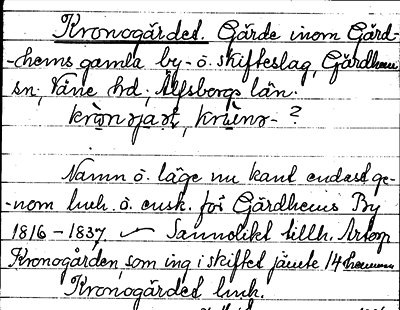 Kronogärdet. Gärde inom Gärd-
-hems gamla by- o. skifteslag, Gärdhem
sn; Väne hd; Älfsborgs län.
?
Namn o. läge nu känt endast ge-
-nom huh. o. ensk. för Gärdhems By
1816-1837, Sannolikt tillh.
Kronogården, som ing i skiftet jämte 14 hemman
Kronogärdet huh.